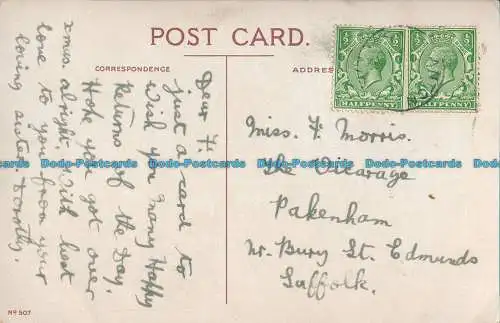 POST CARD.
CORRESPONDENCE
ADDRESS
HALFPENNY
HALFPENNY
Dear F.
just a card to
wish you many Happy
Returns of the Day.
Hope you got over
xmas alright with best
love to you from your
loving sister. Dorothy.
Miss. F. Morris.
The Vicarage
Pakenham
Nr. Bury St. Edmunds
Suffolk.
Nº 507
Dodo-Postcards Dodo-Postcards Dodo-Postcards Dodo-Postcards Dodo-Postcards